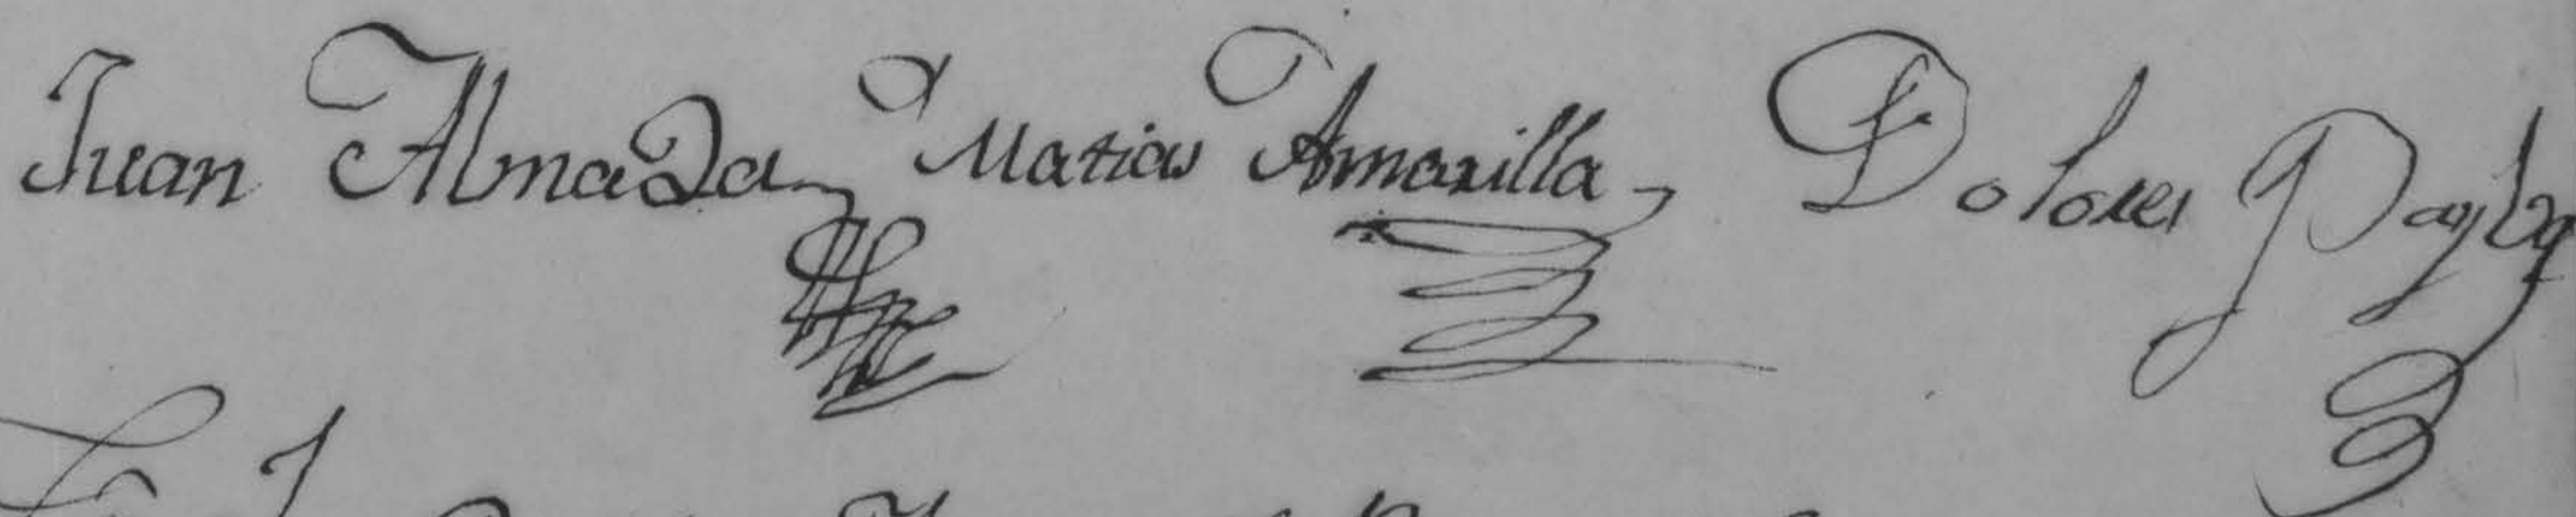 Juan Almada Matias Amarilla Dolores